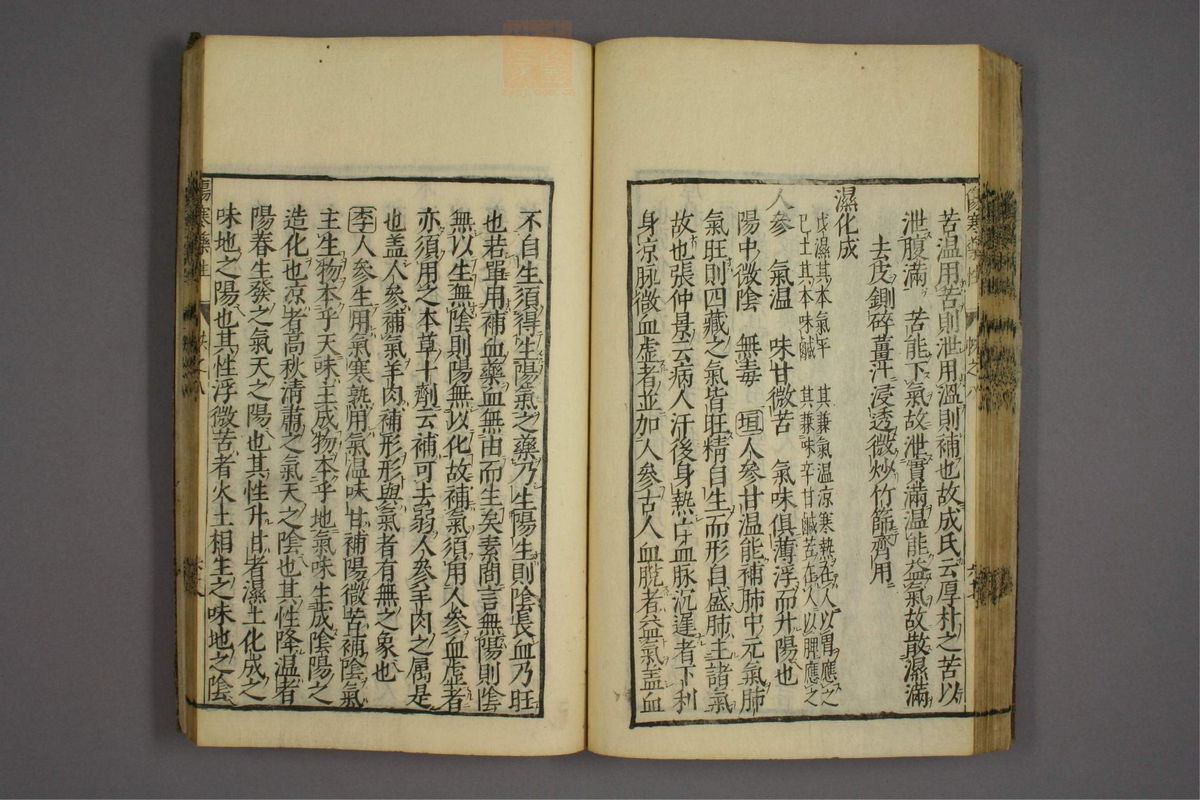 苦温用苦則泄用溫則補也故成氏云厚朴之苦以
泄腹滿　苦能下氣故泄實滿温能益氣故散濕滿
去皮剉碎薑汁浸透微炒竹篩齊用
濕化成
戊濕其本氣平　其兼氣温凉寒熱在人以胃應之
巳土其本味鹹　其兼味辛甘鹹苦在人以脾應之
人參　氣温　味甘微苦　氣味俱薄浮而升陽也
陽中微陰　無毒　垣人參甘温能補肺中元氣肺
氣旺則四藏之氣皆旺精自生而形自盛肺主諸氣
故也張仲景云病人汗後身熱亡血脉沉遲者下利
身凉脉微血虚者並加人參古人血脱者益氣盖血
不自生須得生陽氣之藥乃生陽生則陰長血乃旺
也若單用補血藥血無由而生矣素問言無陽則陰
無以生無陰則陽無以化故補氣須用人參血虚者
亦須用之本草十劑云補可去弱人參羊肉之属是
也盖人參補氣羊肉補形形與氣者有無之象也
李人參生用氣寒熟用氣温味甘補陽微苦補陰氣
主生物本乎天味主成物本乎地氣味生成陰陽之
造化也凉者高秋清肅之氣天之陰也其性降温者
陽春生發之氣天之陽也其性升甘者濕土化成之
味地之陽也其性浮微苦者火土相生之味地之陰
傷寒藥性